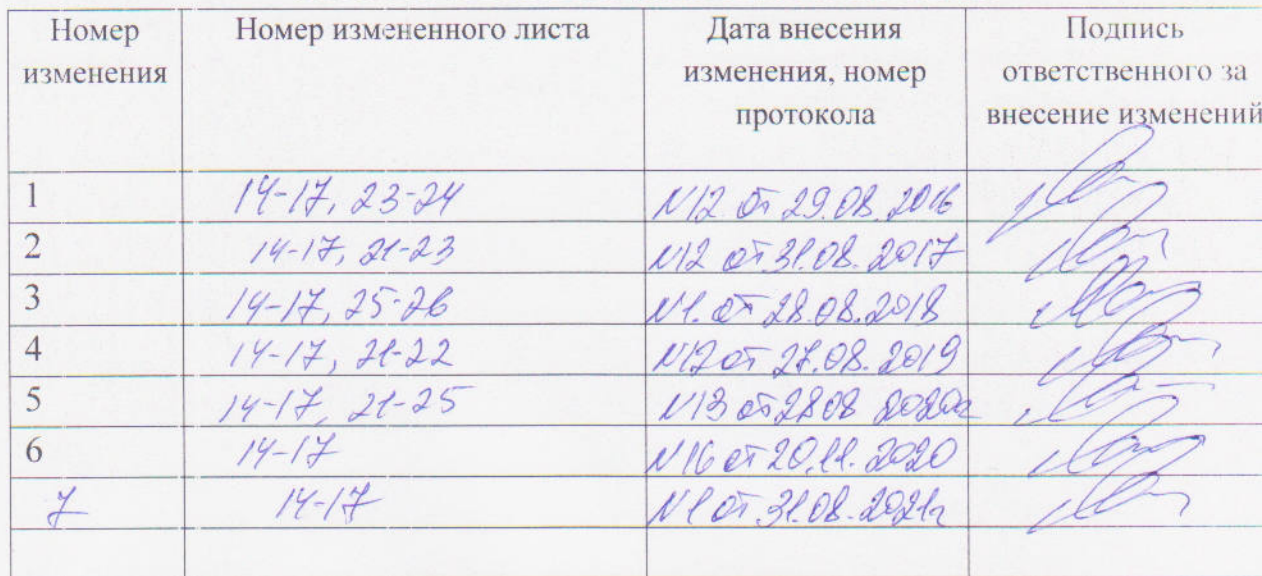 Номер Номер измененного листа Дата внесения Подпись
изменения изменения, номер ответственного за
протокола внесение изменений
1 14-17, 23-24 N12 от 29.08.2016
2 14-17, 21-23 N12 от 31.08.2017
3 14-17, 25-26 N1. от 28.08.2018
4 14-17, 21-22 N12 от 27.08.2019
5 14-17, 21-25 N13 от 28 08 2020г
6 14-17 N16 от 20.11.2020
7 14-17 N1 от 31.08.2021г